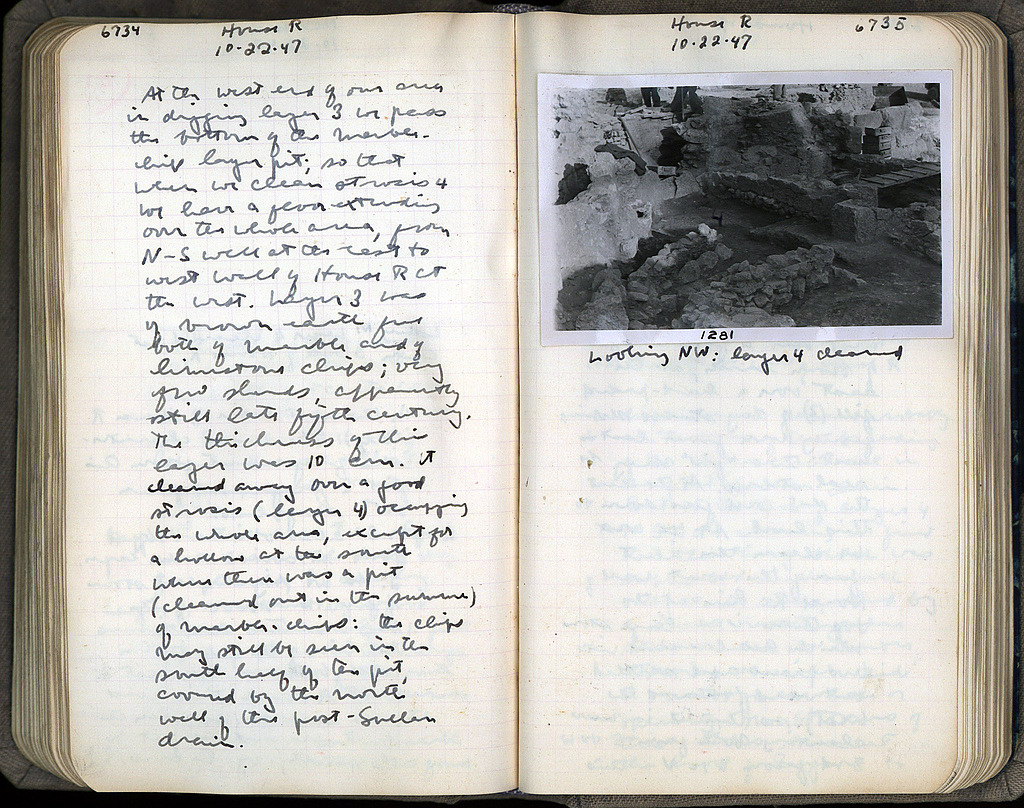 6734
House R
10·22·47
At the west end of our area
in digging layer 3 we pass
the bottom of the marble-
chip layer pit; so that
when we clean strosis 4
we have a floor extending
over the whole area, from
N-S wall at the east to
west wall of House R at
the west. Layer 3 was
of brown earth full
both of marble and of
limestone chips; very
few sherds, apparently
still late fifth century.
The thickness of this
layer was 10 cm. It
cleaned away over a good
strosis (layer 4) occupying
the whole area, except for
a hollow at the south
where there was a pit
(cleaned out in the summer)
of marble-chips: the chips
may still be seen in the
south half of the pit,
covered by the north
wall of the post-Sullan
drain.
House R
10·22·47
6735
1281
Looking NW: layer 4 cleaned